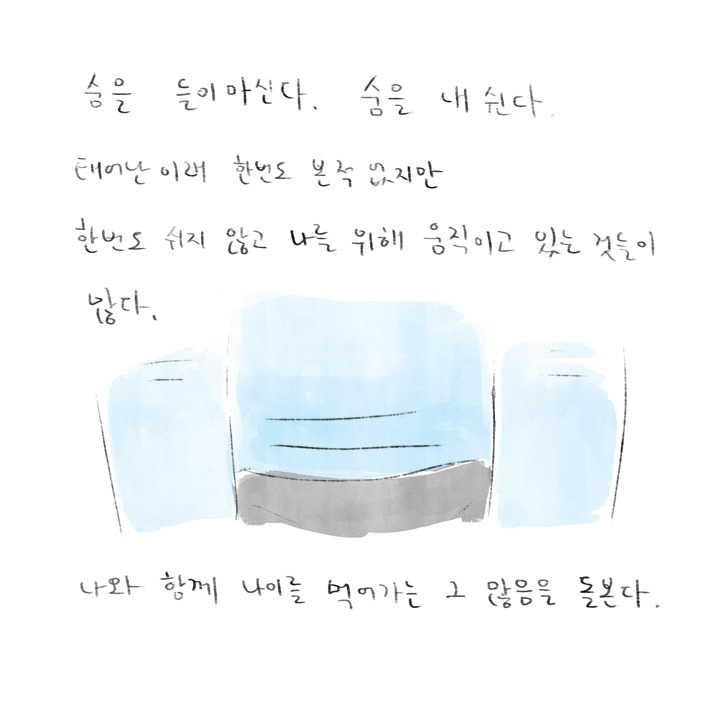 숨을 들이마신다. 숨을 내 쉰다.
태어난 이래 한번도 본적 없지만
한번도 쉬지 않고 나를 위해 움직이고 있는 것들이
많다.
나와 함께 나이를 먹어가는 그 많음을 돌본다.